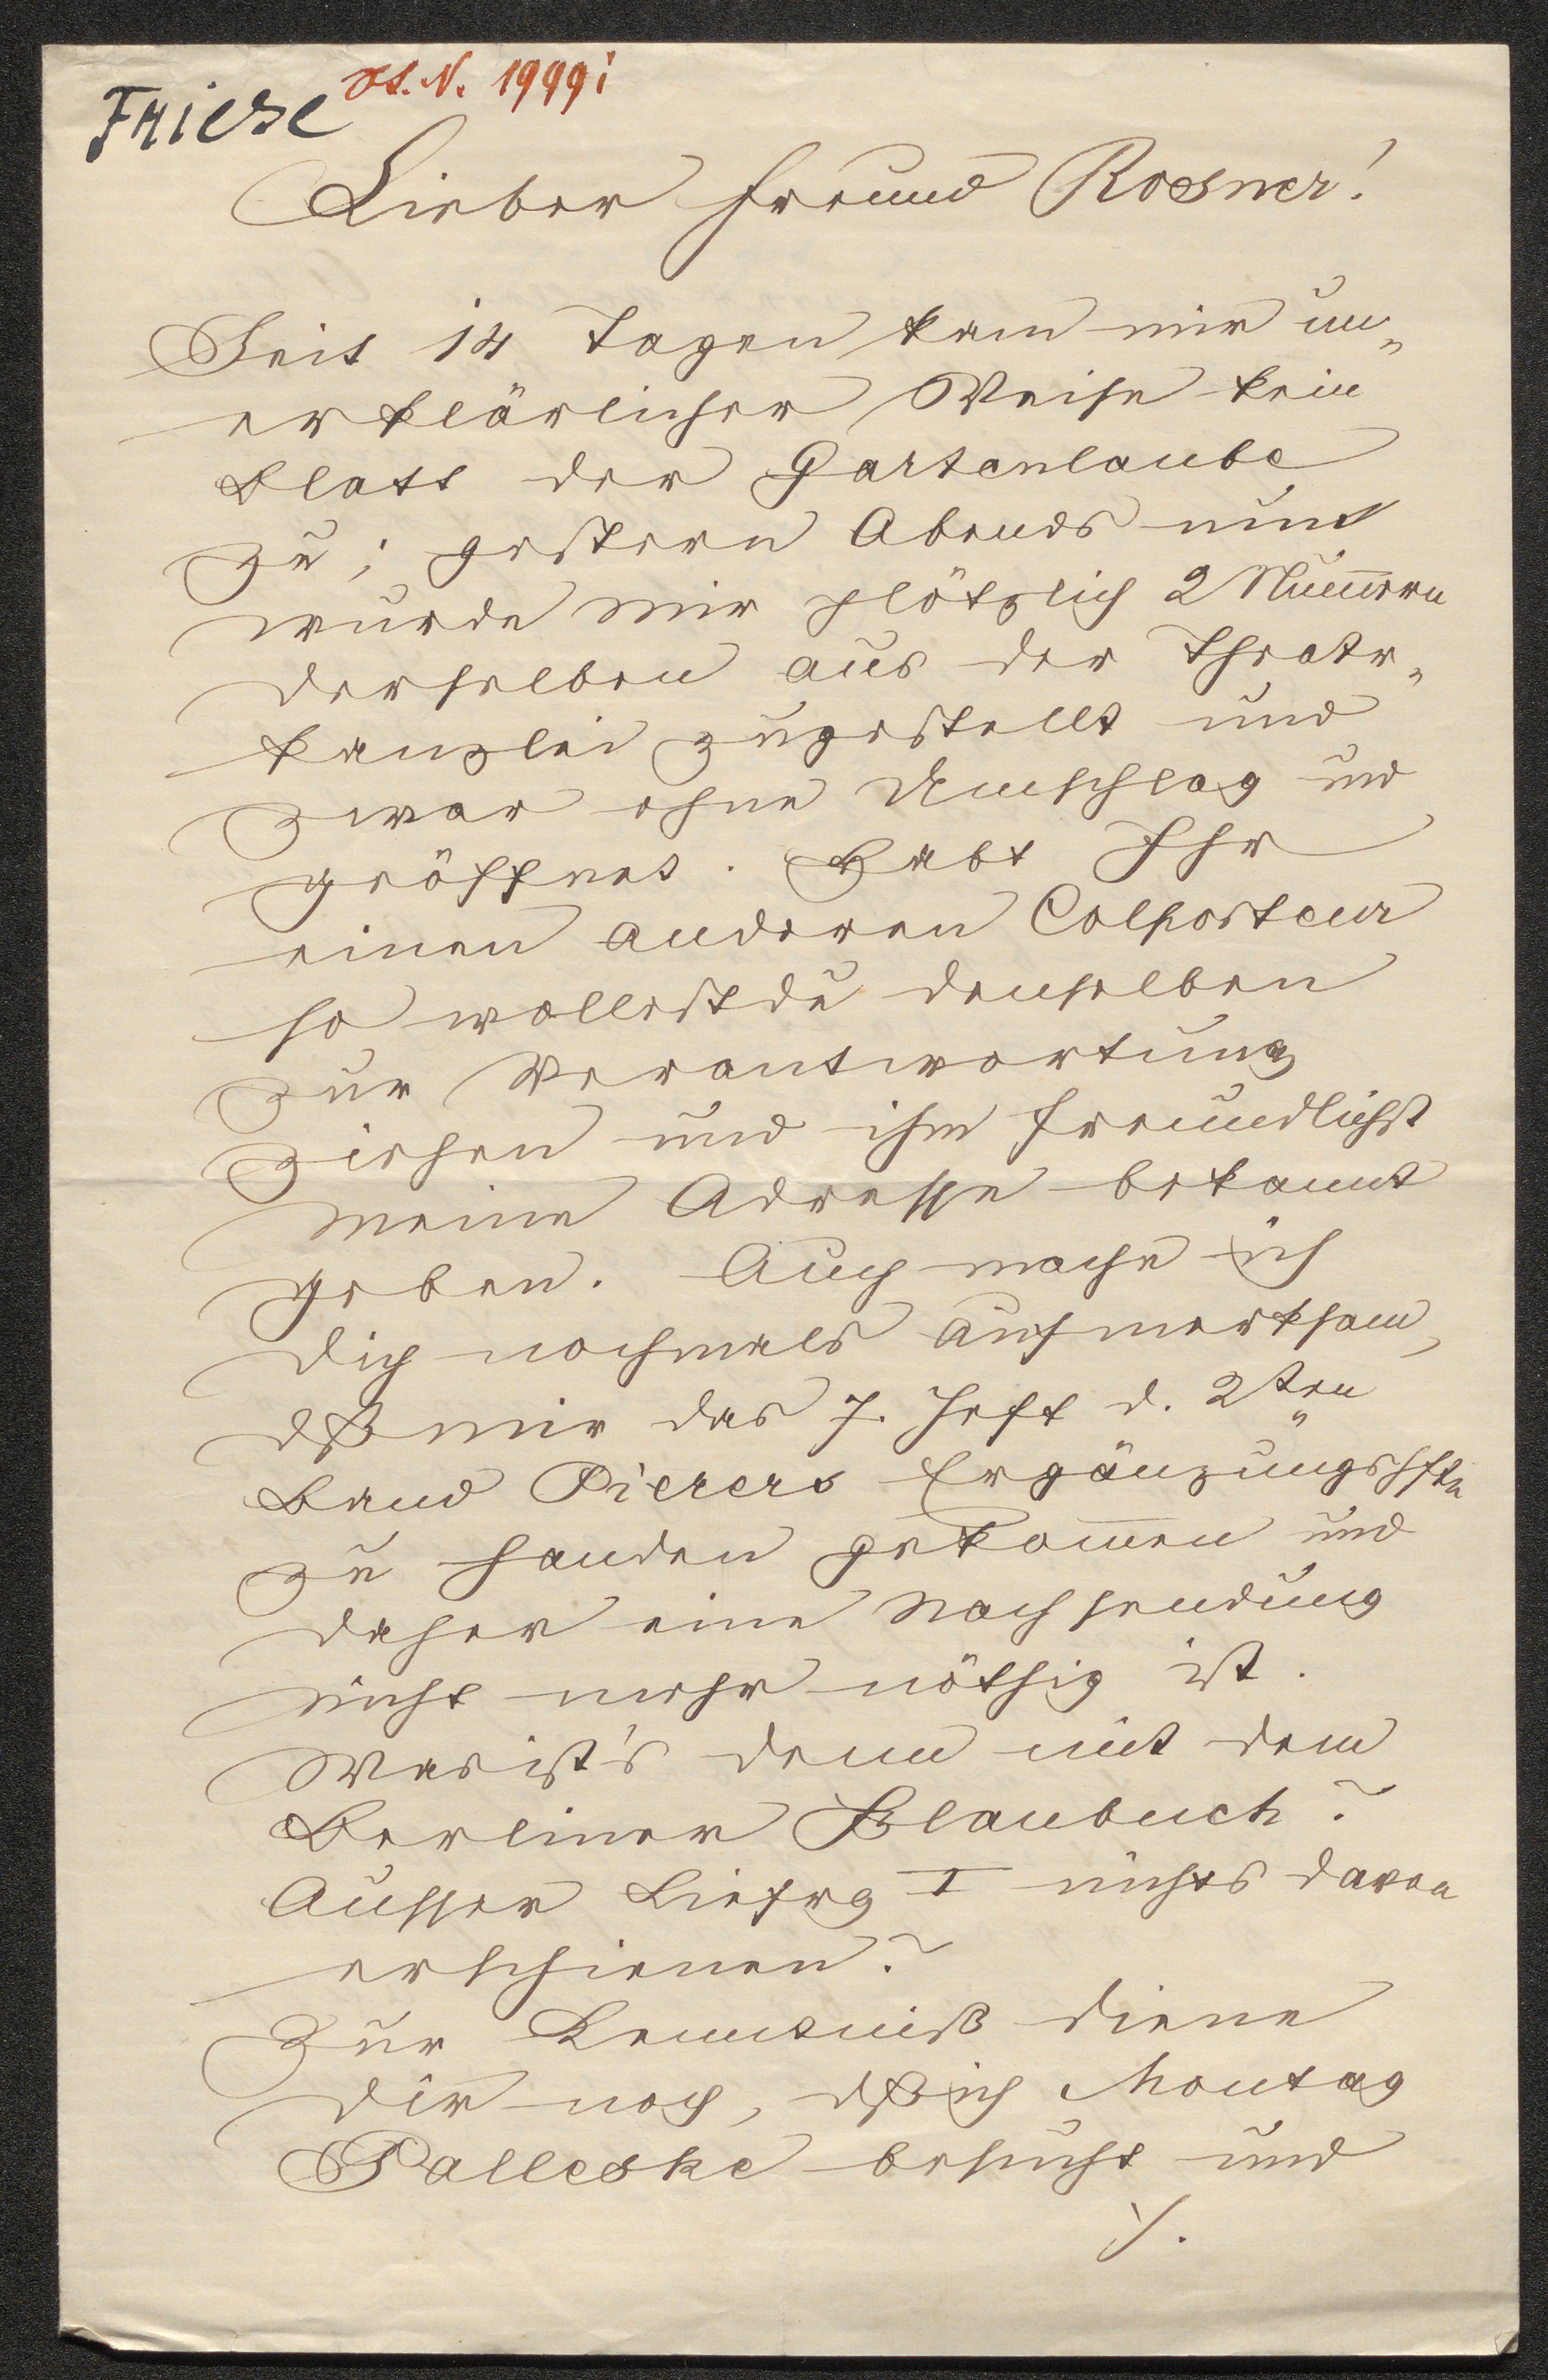 Friese Js. N. 1999i
Lieber Freund Rosner!
Seit 14 Tagen kam mir un„
erklärlicher Weise kein
Blatt der Gartenlaube
zu; gestern Abends nun
wurde mir plötzlich 2 Num̅ern
derselben aus der Theatr„
kanzlei zugestellt und
zwar ohne Umschlag und
geöffnet. Habt Ihr
einen anderen Colporteur
so wollest du denselben
zur Verantwortung
ziehen und ihm freundlichst
meine Adresse bekannt
geben. Auch mache ich
dich nochmals aufmerksam,
dß mir das 7. Heft d. 2ten
Band Pierers Ergänzungshfte
zu Handen gekom̅en und
daher eine Nachsendung
nicht mehr nöthig ist.
Was ist's denn mit dem
Berliner Blaubuch?
Ausser Liefrg I nichts davon
erschienen?
Zur Kenntniß diene
dir noch, dß ich Montag
Palleske besucht und
./.